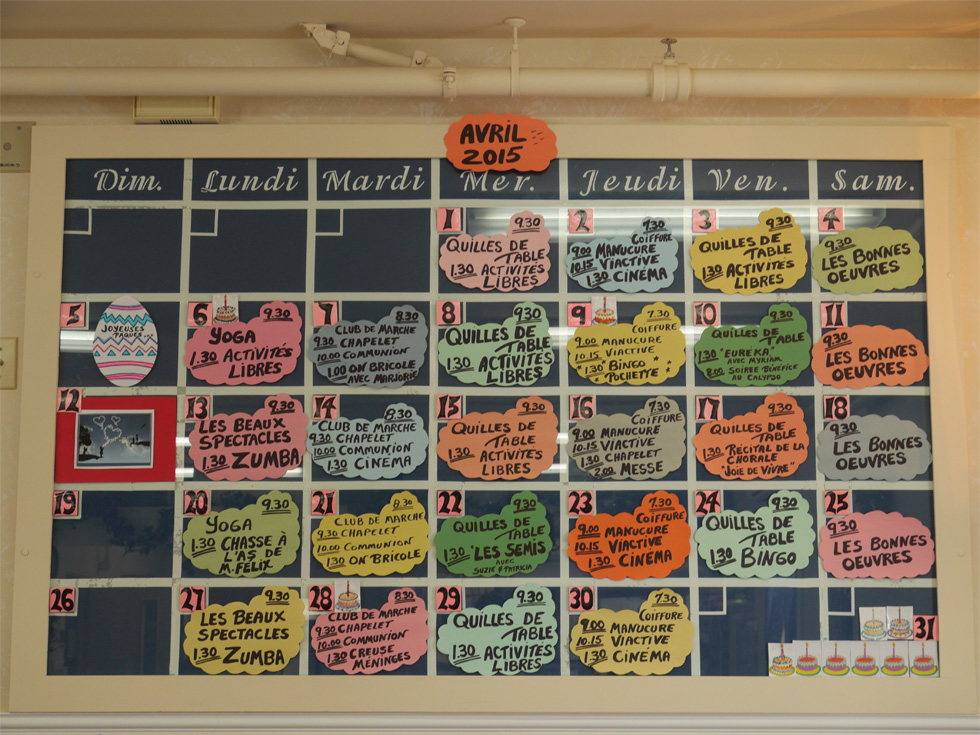 AVRIL
2015
Dim. Lundi Mardi Mer. Jeudi Ven. Sam.
1
9.30
QUILLES DE
TABLE
1.30 ACTIVITÉS
LIBRES
2
7.30
COIFFURE
9.00 MANUCURE
10.15 VIACTIVE
1.30 CINÉMA
3
9.30
QUILLES DE
TABLE
1.30 ACTIVITÉS
LIBRES
4
9.30
LES BONNES
OEUVRES
5
JOYEUSES
PÂQUES...
6
9.30
YOGA
1.30 ACTIVITÉS
LIBRES
7
8.30
CLUB DE MARCHE
9.30 CHAPELET
10.00 COMMUNION
1.00 ON BRICOLE
AVEC MARJORIE
8
9.30
QUILLES DE
TABLE
1.30 ACTIVITÉS
LIBRES
9
7.30
COIFFURE
9.00 MANUCURE
10.15 VIACTIVE
1.30 BINGO
POCHETTE
10
9.30
QUILLES DE
TABLE
1.30 "EURÉKA"
AVEC MYRIAM
8.00 SOIRÉE BÉNÉFICE
AU CALYPSO
11
9.30
LES BONNES
OEUVRES
12
13
9.30
LES BEAUX
SPECTACLES
1.30 ZUMBA
14
8.30
CLUB DE MARCHE
9.30 CHAPELET
10.00 COMMUNION
1.30 CINÉMA
15
9.30
QUILLES DE
TABLE
1.30 ACTIVITÉS
LIBRES
16
7.30
COIFFURE
9.00 MANUCURE
10.15 VIACTIVE
1.30 CHAPELET
2.00 MESSE
17
9.30
QUILLES DE
TABLE
1.30 RÉCITAL DE LA
CHORALE
"JOIE DE VIVRE"
18
9.30
LES BONNES
OEUVRES
19
20
9.30
YOGA
1.30 CHASSE À
L'AS DE
M. FELIX
21
8.30
CLUB DE MARCHE
9.30 CHAPELET
10.00 COMMUNION
1.30 ON BRICOLE
22
9.30
QUILLES DE
TABLE
1.30 "LES SEMIS
AVEC
SUZIE & PATRICIA
23
7.30
COIFFURE
9.00 MANUCURE
10.15 VIACTIVE
1.30 CINÉMA
24
9.30
QUILLES DE
TABLE
1.30 BINGO
25
9.30
LES BONNES
OEUVRES
26
27
9.30
LES BEAUX
SPECTACLES
1.30 ZUMBA
28
8.30
CLUB DE MARCHE
9.30 CHAPELET
10.00 COMMUNION
1.30 CREUSE
MÉNINGES
29
9.30
QUILLES DE
TABLE
1.30 ACTIVITÉS
LIBRES
30
7.30
COIFFURE
9.00 MANUCURE
10.15 VIACTIVE
1.30 CINÉMA
31